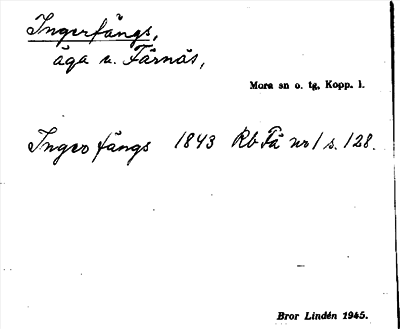 Ingerfängs,
äga u. Färnäs,
Mora sn o. tg, Kopp. l.
Ingers fängs 1843 Rb Fä nr 1 s. 128.
Bror Lindén 1945.